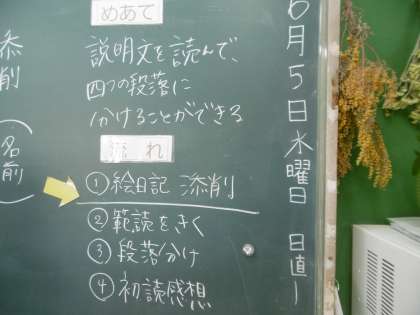 6月5日水曜日 日直
めあて
説明文を読んで、
四つの段落に
分けることができる
流れ
①絵日記 添削
②範読をきく
③段落分け
④初読感想
添削(名前)